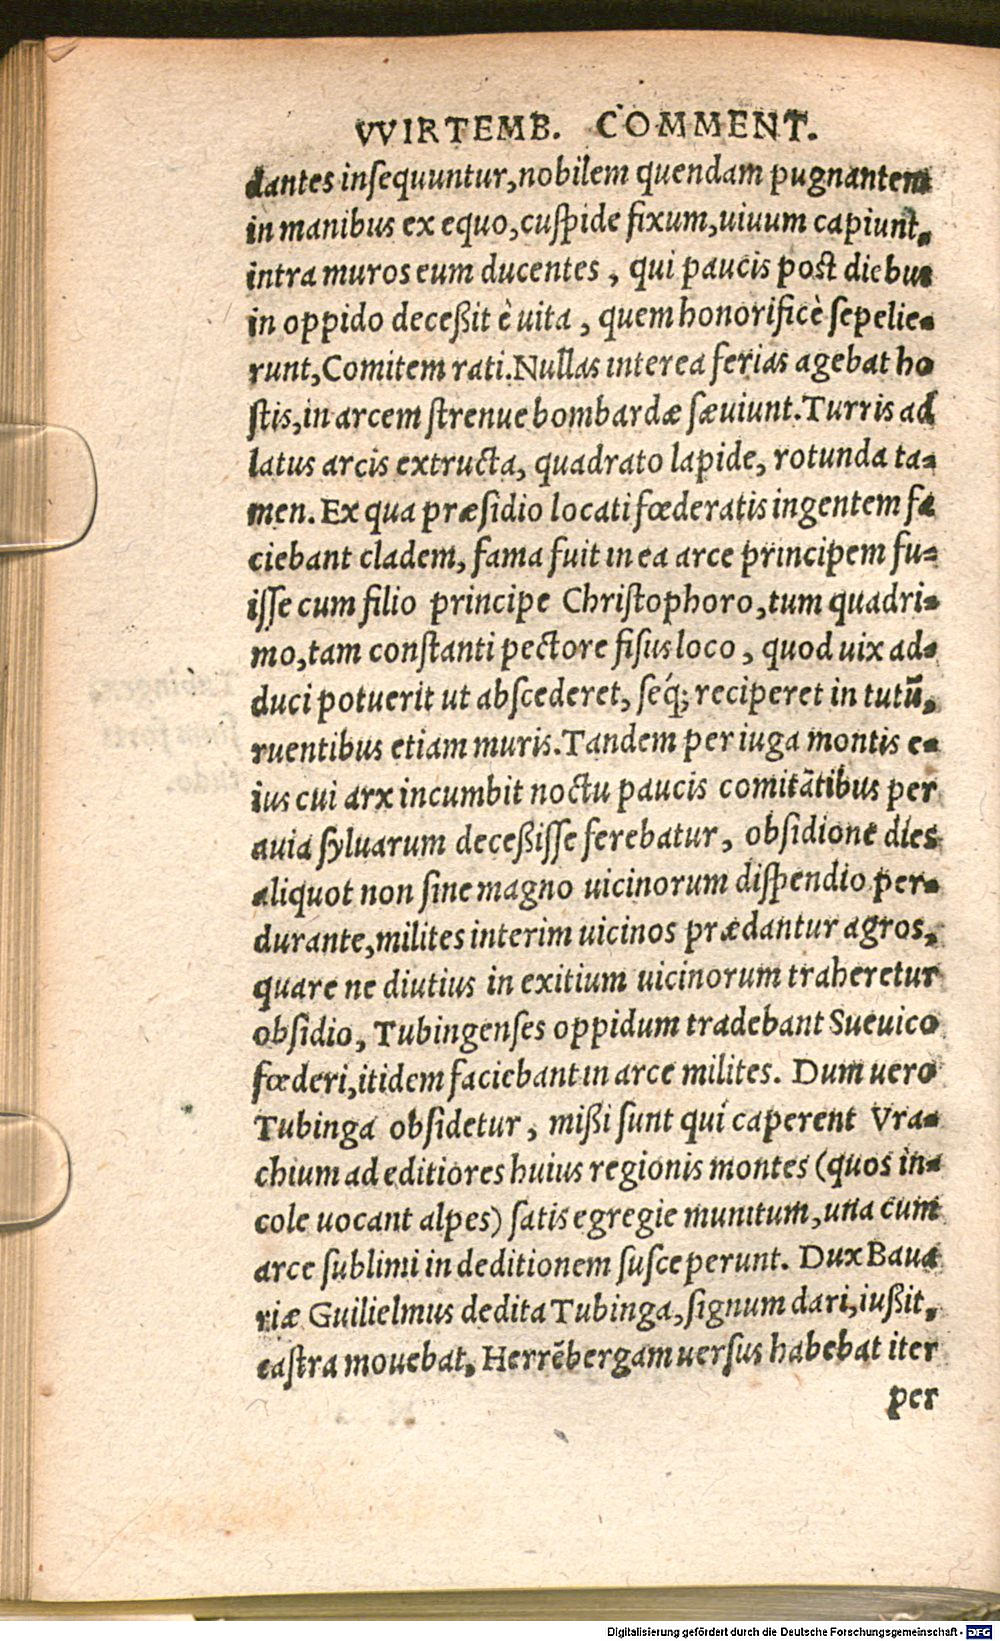 VVIRTEMB. COMMENT.
dantes insequuntur, nobilem quendam pugnantem
in manibus ex equo, cuspide fixum, uiuum capiunt,
intra muros eum ducentes, qui paucis post diebus
in oppido deceßit è uita, quem honorificè sepelie-
runt, Comitem rati. Nullas interea ferias agebat ho
stis, in arcem strenue bombardæ sæuiunt. Turris ad
latus arcis extructa, quadrato lapide, rotunda ta-
men. Ex qua præsidio locati fœderatis ingentem fa
ciebant cladem, fama fuit in ea arce principem fu-
isse cum filio principe Christophoro, tum quadri-
mo, tam constanti pectore fisus loco, quod uix ad-
duci potuerit ut abscederet, seq́; reciperet in tutũ,
ruentibus etiam muris. Tandem per iuga montis e-
ius cui arx incumbit noctu paucis comitãtibus per
auia syluarum deceßisse ferebatur, obsidione dies
aliquot non sine magno uicinorum dispendio per-
durante, milites interim uicinos prædantur agros,
quare ne diutius in exitium uicinorum traheretur
obsidio, Tubingenses oppidum tradebant Sueuico
fœderi, itidem faciebant in arce milites. Dum uero
Tubinga obsidetur, mißi sunt qui caperent Vra-
chium ad editiores huius regionis montes (quos in-
cole uocant alpes) satis egregie munitum, una cum
arce sublimi in deditionem susceperunt. Dux Baua
riæ Guilielmus dedita Tubinga, signum dari, iußit,
castra mouebat, Herrẽbergam uersus habebat iter
per
Digitalisierung gefördert durch die Deutsche Forschungsgemeinschaft - DFG